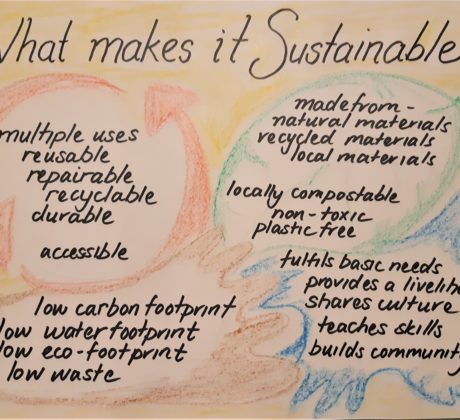 What makes it Sustainable
multiple uses
reusable
repairable
recyclable
durable
accessible
made from -
natural materials
recycled materials
local materials
locally compostable
non-toxic
plastic free
low carbon footprint
low water footprint
low eco-footprint
low waste
fulfils basic needs
provides a
shares culture
teaches skills
builds community